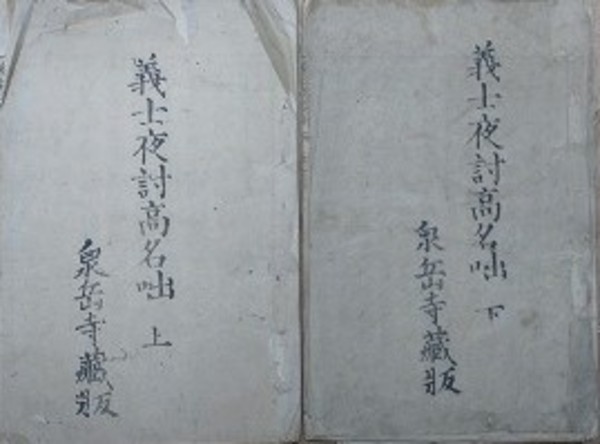 義士夜討高名咄 上
泉岳寺藏版
義士夜討高名咄 下
泉岳寺藏版